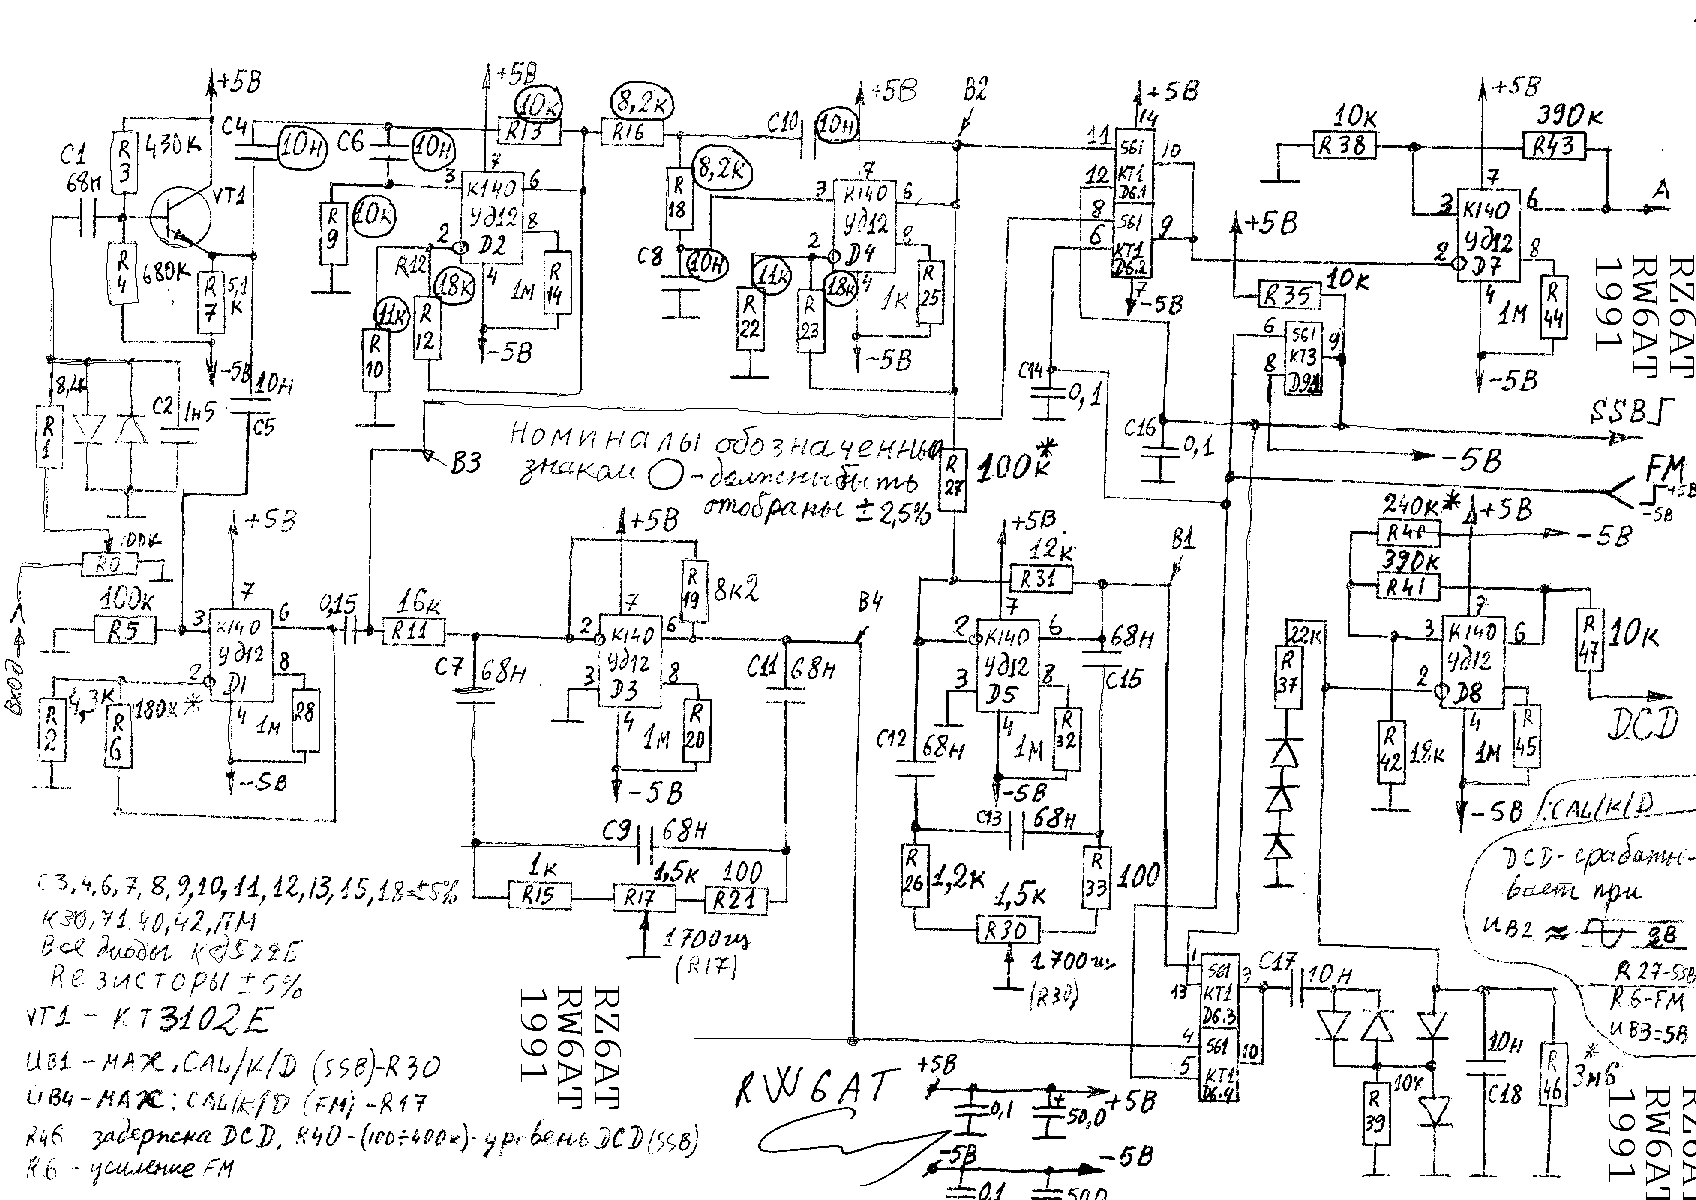 +5В
C1
68н
R3
430к
VT1
R4
680к
R7
5,1к
-5В
C4
10н
C6
10н
+5В
10к
R13
8,2к
R16
10к
R9
3
7
6
К140
УД12
D2
2
8
4
R12
18к
R12
11к
R10
1М
R14
-5В
8,2к
R18
C8
10н
C10
10н
+5В
B2
3
7
6
К140
УД12
D4
2
8
4
11к
R22
R23
18к
1к
R25
-5В
+5В
14
11
12
561
КТ1
D6.1
10
8
6
561
КТ1
D6.2
9
7
-5В
C14
0,1
C16
0,1
+5В
10к
R35
6
8
561
КТ3
D9.1
9
-5В
10к
R38
390к
R43
+5В
3
7
6
К140
УД12
D7
2
8
4
1М
R44
-5В
A
RZ6AT
RW6AT
1991
SSB
FM
+5В
-5В
8,2к
R1
C2
1н5
10н
C5
100к
R0
Вход
B3
Номиналы обозначенные
знаком ○ - должны быть
отобраны ±2,5%
R27
100к*
+5В
100к
R5
3
7
6
К140
УД12
D1
2
8
4
4,3к
R2
R6
180к*
1М
28
-5В
0,15
16к
R11
+5В
R19
8к2
2
7
6
К140
УД12
D3
3
8
4
1М
R20
-5В
C7
68н
C11
68н
B4
C9
68н
1к
R15
1,5к
R17
100
R21
1700гц
(R17)
+5В
12к
R31
B1
2
7
6
К140
УД12
D5
3
8
4
1М
R32
-5В
68н
C15
C12
68н
C13
68н
R26
1,2к
1,5к
R30
R33
100
1700гц
(R30)
240к*
R40
+5В
-5В
390к
R41
3
7
6
К140
УД12
D8
2
4
22к
R37
R42
18к
1М
R45
-5В
R47
10к
DCD
CAL/K/D
DCD- срабаты-
вает при
UB2 ≈ 3В
R27-SSB
R6-FM
UB3=5В
C3,4,6,7,8,9,10,11,12,13,15,18=±5%
К30,71.40,42,ПМ
Все диоды КД522Б
Rезисторы ±5%
VT1 - КТ3102Е
UB1 - МАЖ.CAL/K/D (SSB)-R30
UB4 - МАЖ: CAL/K/D (FM) - R17
R46 задержка DCD, R40-(100÷400к)- уровень DCD(SSB)
R6 - усиление FM
RZ6AT
RW6AT
1991
RW6AT
+5В
0,1
50,0
+5В
-5В
-5В
0,1
50,0
1
13
561
КТ1
D6.3
4
5
561
КТ1
D6.4
10
C17
10н
R39
10к
10н
C18
R46
*
3м6
RZ6AT
RW6AT
1991